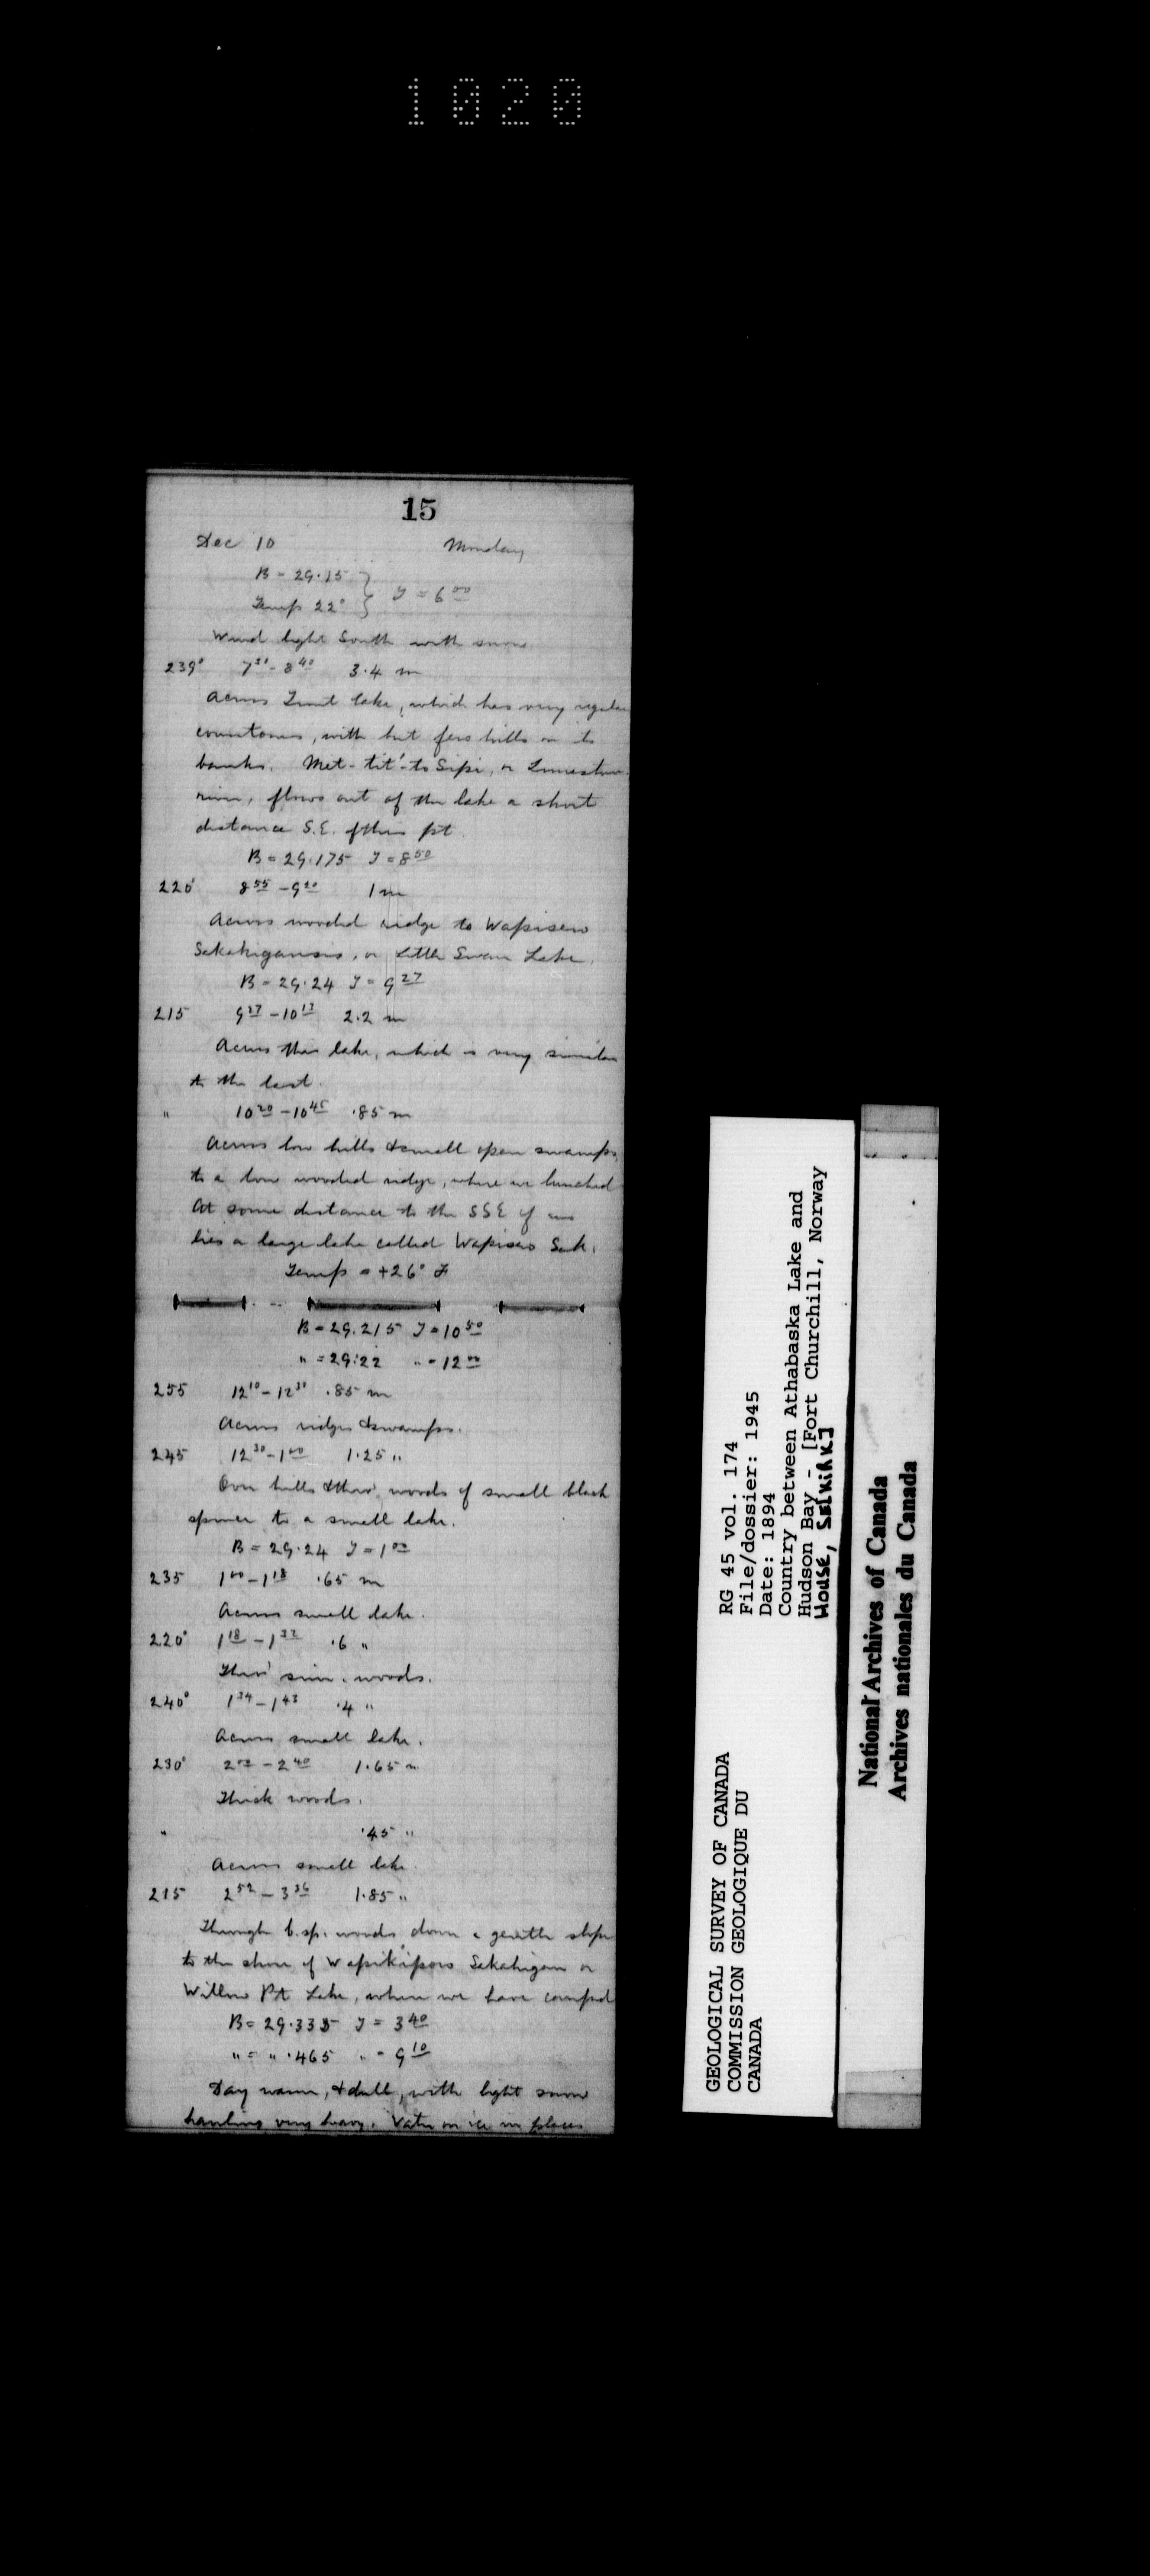 1020
15
Dec 10 Monday
B = 29.15
Temp 22° } T = 6 00
Wind light South with snow
239° 7 30 - 8 40 3.4 m
Across Limest lake, which has very regular
countours, with but few hills on its
banks. Met-tit'-to Sipi, or Limestone
river, flows out of the lake a short
distance S.E. of this pt.
B = 29.175 T = 8 50
220° 8 55 - 9 20 1 m
Across wooded ridge to Wapisew
Sakahigansis, or Little Swan Lake.
B = 29.24 T = 9 27
215 9 27 - 10 17 2.2 m
Across this lake, which is very similar
to the last.
" 10 20 - 10 45 .85 m
Across low hills & small open swamps,
to a low wooded ridge, where we lunched
At some distance to the SSE of us
lies a large lake called Wapisew Sak.
Temp = +26° F
B = 29.215 T = 10 50
" = 29.22 " = 12 00
255 12 10 - 12 30 .85 m
Across ridges & swamps.
245 12 30 - 1 00 1.25 "
Over hills & thro' woods of small black
spruce to a small lake.
B = 29.24 T = 1 00
235 1 00 - 1 18 .65 m
Across small lake.
220° 1 18 - 1 32 .6 "
Thro' sim. woods.
240° 1 34 - 1 43 .4 "
Across small lake.
230° 2 00 - 2 40 1.65 m
Thick woods.
" .45 "
Across small lake.
215 2 52 - 3 36 1.85 "
Through b. sp. woods, down a gentle slope
to the shore of Wapikipow Sakahigan or
Willow Pt Lake, where we have camped
B = 29.335 T = 3 40
" = " .465 " = 9 10
Day warm, & dull, with light snow
hauling very heavy. Water on ice in places
RG 45 vol. 174
File/dossier: 1945
Date: 1894
Country between Athabaska Lake and
Hudson Bay - [Fort Churchill, Norway
House, Selkirk]
GEOLOGICAL SURVEY OF CANADA
COMMISSION GEOLOGIQUE DU
CANADA
National Archives of Canada
Archives nationales du Canada